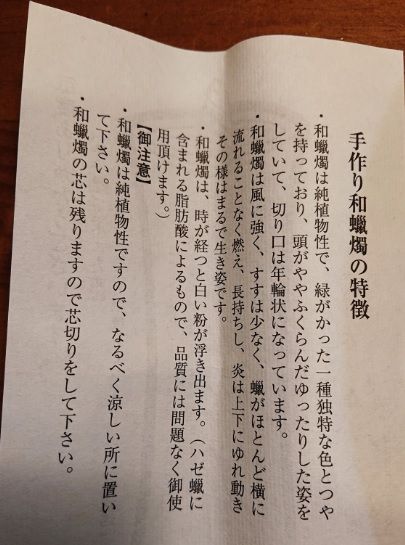 手作り和蠟燭の特徴
・和蠟燭は純植物性で、緑がかった一種独特な色とつや
を持っており、頭がややふくらんだゆったりした姿を
していて、切り口は年輪状になっています。
・和蠟燭は風に強く、すすは少なく、蠟がほとんど横に
流れることなく燃え、長持ちし、炎は上下にゆれ動き
その様はまるで生き姿です。
・和蠟燭は、時が経つと白い粉が浮き出ます。（ハゼ蠟に
含まれる脂肪酸によるもので、品質には問題なく御使
用頂けます。）
【御注意】
・和蠟燭は純植物性ですので、なるべく涼しい所に置い
て下さい。
・和蠟燭の芯は残りますので芯切りをして下さい。